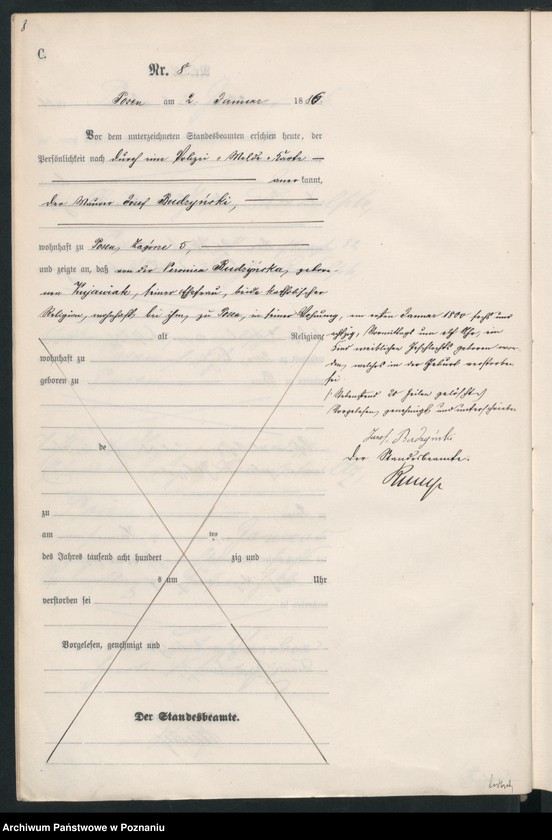 8
C.
Nr. 8
Posen am 2 Januar 1886
Vor dem unterzeichneten Standesbeamten erschien heute, der
Persönlichkeit nach durch eine Polizei-Melde-Karte
anerkannt,
der Maurer Josef Budzyński,
wohnhaft zu Posen, Zagórze 5,
und zeigte an, daß von der Veronica Budzyńska, gebore-
nen Kujawiak, seiner Ehefrau, beide katholischer
Religion, wohnhaft bei ihm, zu Posen, in seiner Wohnung, am ersten Januar 1800 sechs und
achtzig, Vormittags um elf Uhr, ein
Kind weiblichen Geschlechts geboren wor-
den, welches in der Geburt verstorben
sei
Nebenstehend 20 Zeilen gelöscht
Vorgelesen, genehmigt und unterschrieben
Josef Budzyński
Der Standesbeamte.
alt Religion,
wohnhaft zu
geboren zu
de
zu
am
des Jahres tausend acht hundert zig und
s um Uhr
verstorben sei
Vorgelesen, genehmigt und
Der Standesbeamte.
Archiwum Państwowe w Poznaniu